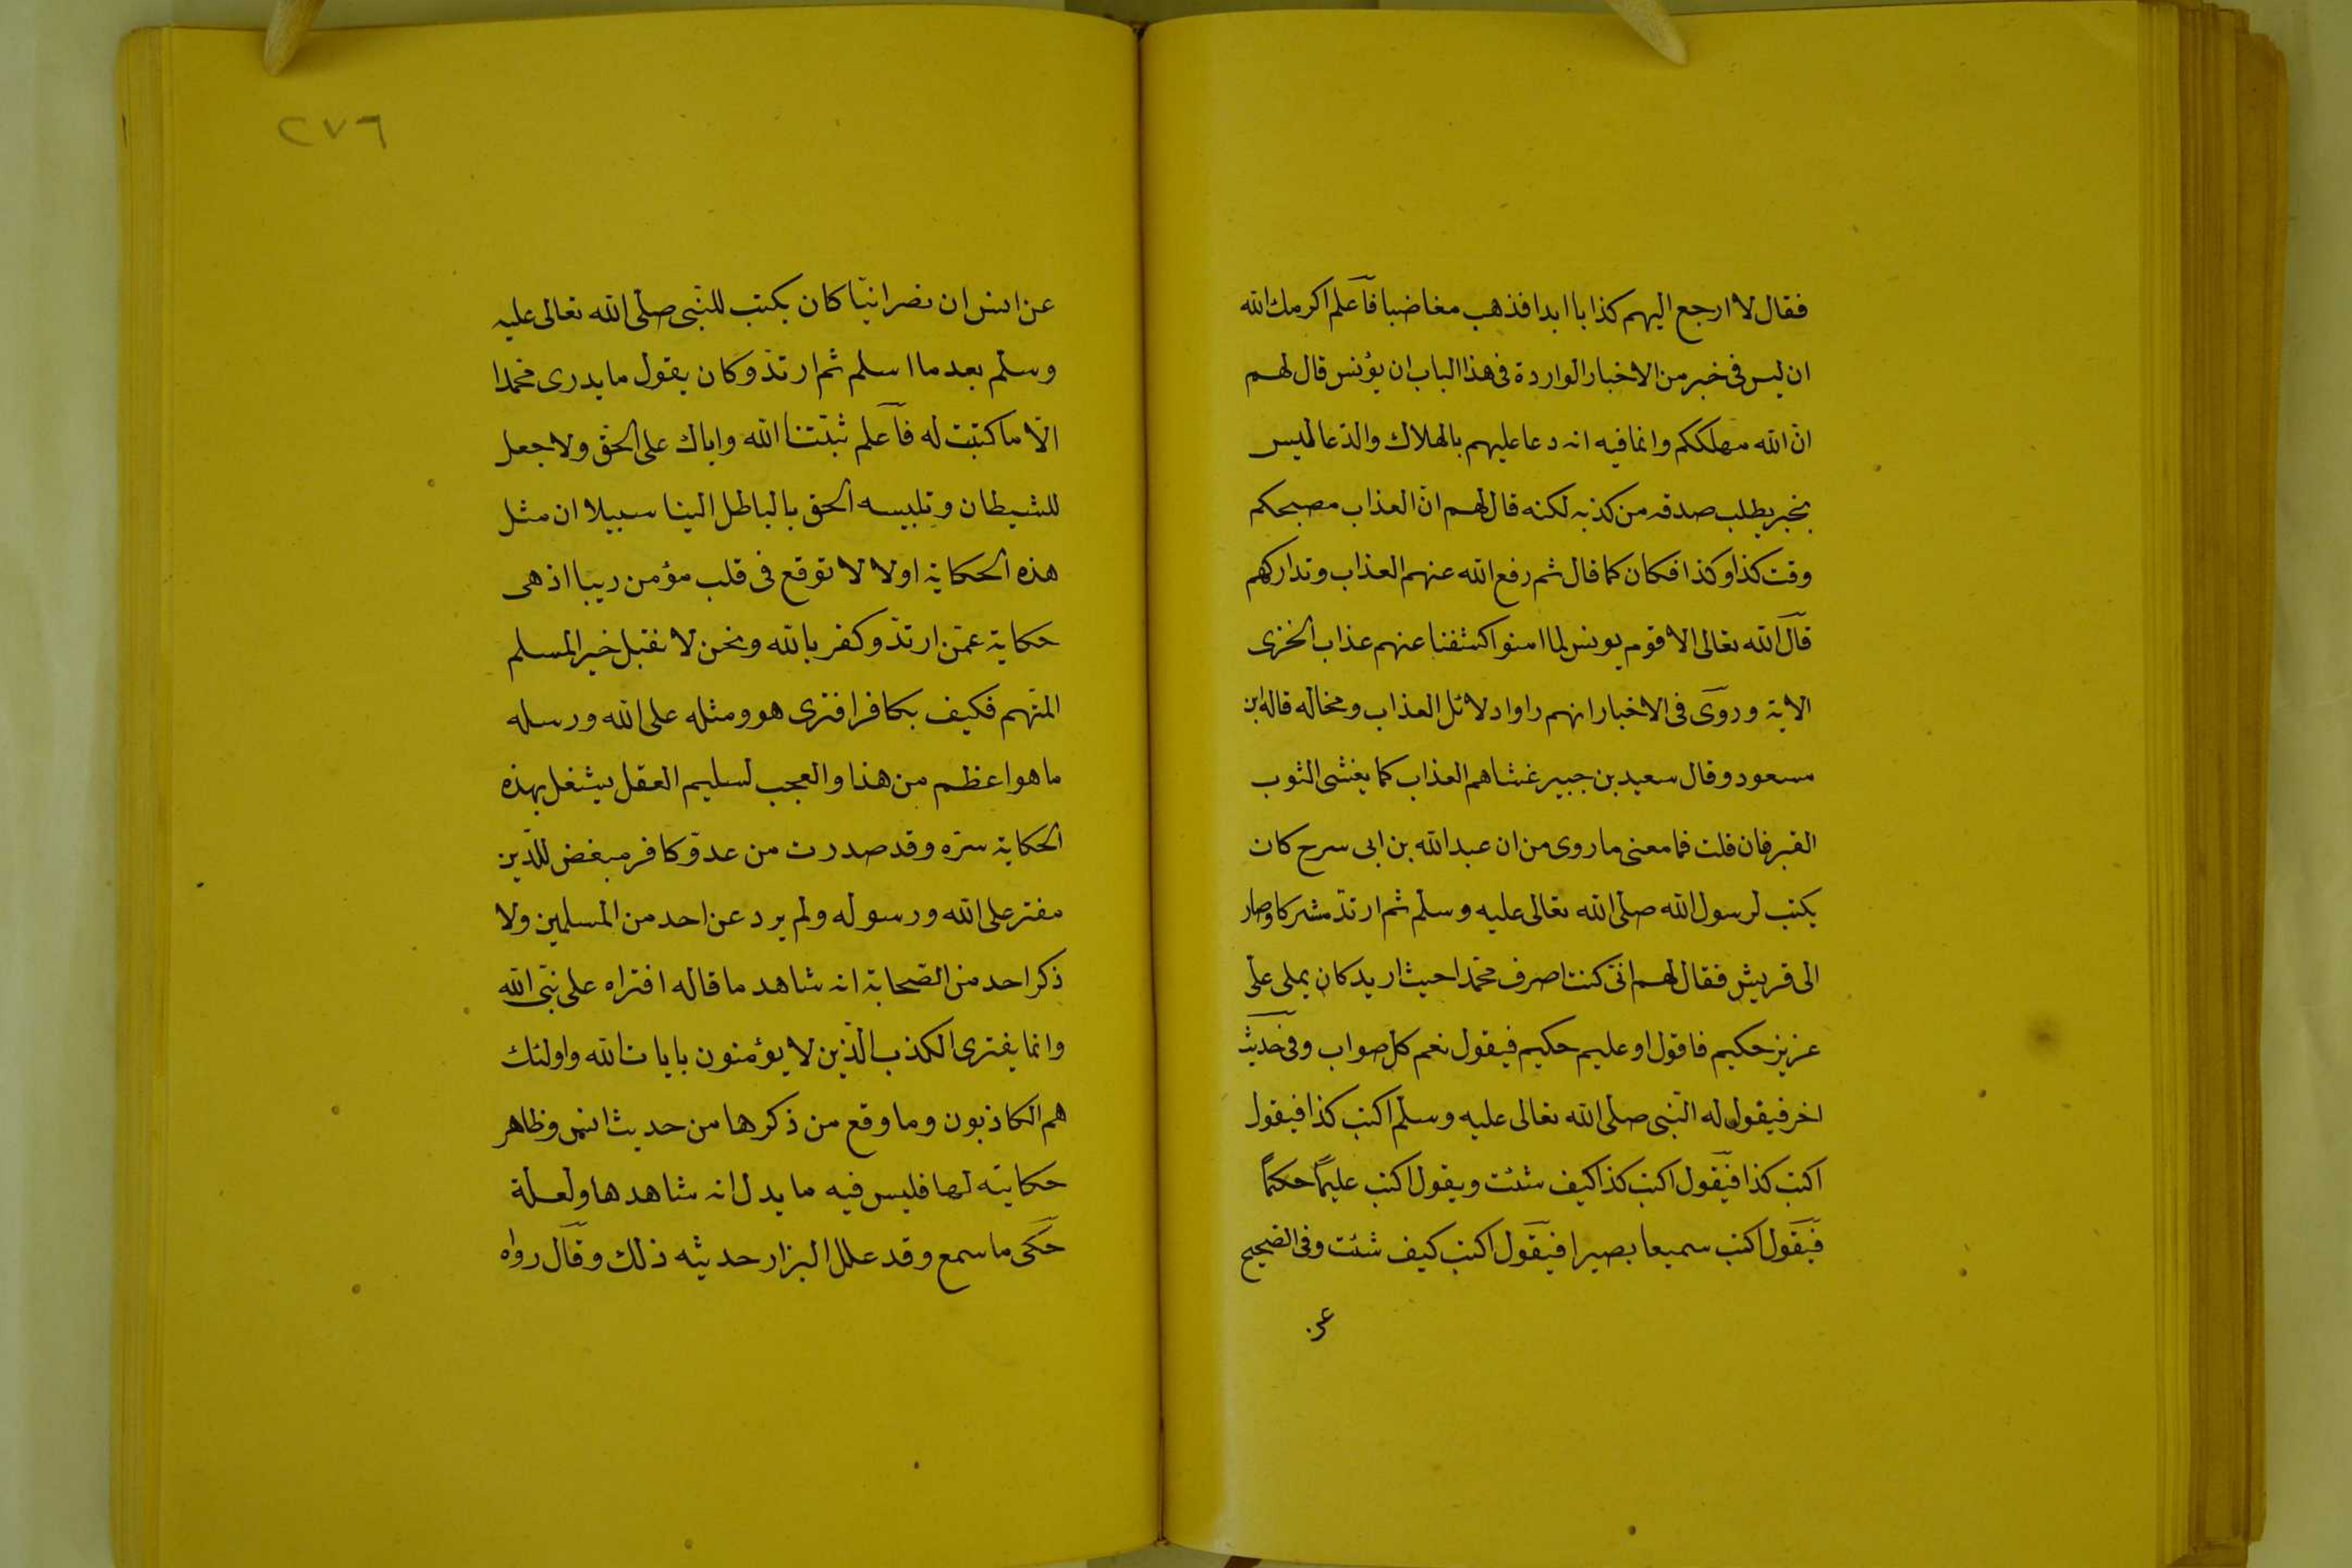 فقال لا ارجع اليهم كذابا ابدا فذهب مغاضبا فاعلم اكرمك الله
ان ليس فى خبر من الاخبار الواردة فى هذا الباب ان يؤنس قال لهم
انّ الله مهلككم وانما فيه انه دعا عليهم بالهلاك والدّعا ليس
بخبر يطلب صدقه من كذبه لكنه قال لهم انّ العذاب مصبحكم
وقت كذا وكذا فكان كما قال ثم رفع الله عنهم العذاب وتداركهم
قال الله تعالى الا قوم يونس لما امنوا كشفنا عنهم عذاب الخزى
الاية وروى فى الاخبار انهم راوا دلائل العذاب ومخاله قاله ابن
مسعود وقال سعيد بن جبير غشاهم العذاب كما يغشى الثوب
القبر فان قلت فما معنى ما روى من ان عبد الله بن ابى سرح كان
يكتب لرسول الله صلّى الله تعالى عليه وسلّم ثم ارتدّ مشركا وصار
الى قريش فقال لهم انّى كنت اصرف محمّدا حيث اريد كان يملى علىّ
عزيز حكيم فاقول او عليم حكيم فيقول نعم كل صواب وفى حديث
اخر فيقول له النّبى صلّى الله تعالى عليه وسلّم اكتب كذا فيقول
اكتب كذا فيقول اكتب كذا كيف شئت ويقول اكتب عليمًا حكيمًا
فيقول اكتب سميعا بصيرا فيقول اكتب كيف شئت وفى الصّحيح
عن
٢٧٦
عن انس ان نصرانيّا كان يكتب للنّبى صلّى الله تعالى عليه
وسلّم بعد ما اسلم ثم ارتدّ وكان يقول ما يدرى محمّدا
الّا ما كتبت له فاعلم ثبّتنا الله واياك على الحقّ ولا جعل
للشيطان وتلبيسه الحق بالباطل الينا سبيلا ان مثل
هذه الحكاية اولا لا توقع فى قلب مؤمن ريبا اذ هى
حكاية عمّن ارتدّ وكفر بالله ونحن لا نقبل خبر المسلم
المتّهم فكيف بكافر افترى هو ومثله على الله ورسله
ما هو اعظم من هذا والعجب لسليم العقل يشغل بهذه
الحكاية سرّه وقد صدرت من عدوّ كافر مبغض للدّين
مفتر على الله ورسوله ولم يرد عن احد من المسلمين ولا
ذكر احد من الصّحابة انه شاهد ما قاله افتراه على نبّى الله
وانما يفترى الكذب الّذين لا يؤمنون بايات الله واولئك
هم الكاذبون وما وقع من ذكرها من حديث انس وظاهر
حكايته لها فليس فيه ما يدل انه شاهدها ولعلّة
حكى ما سمع وقد علل البزار حديثه ذلك وقال رواه